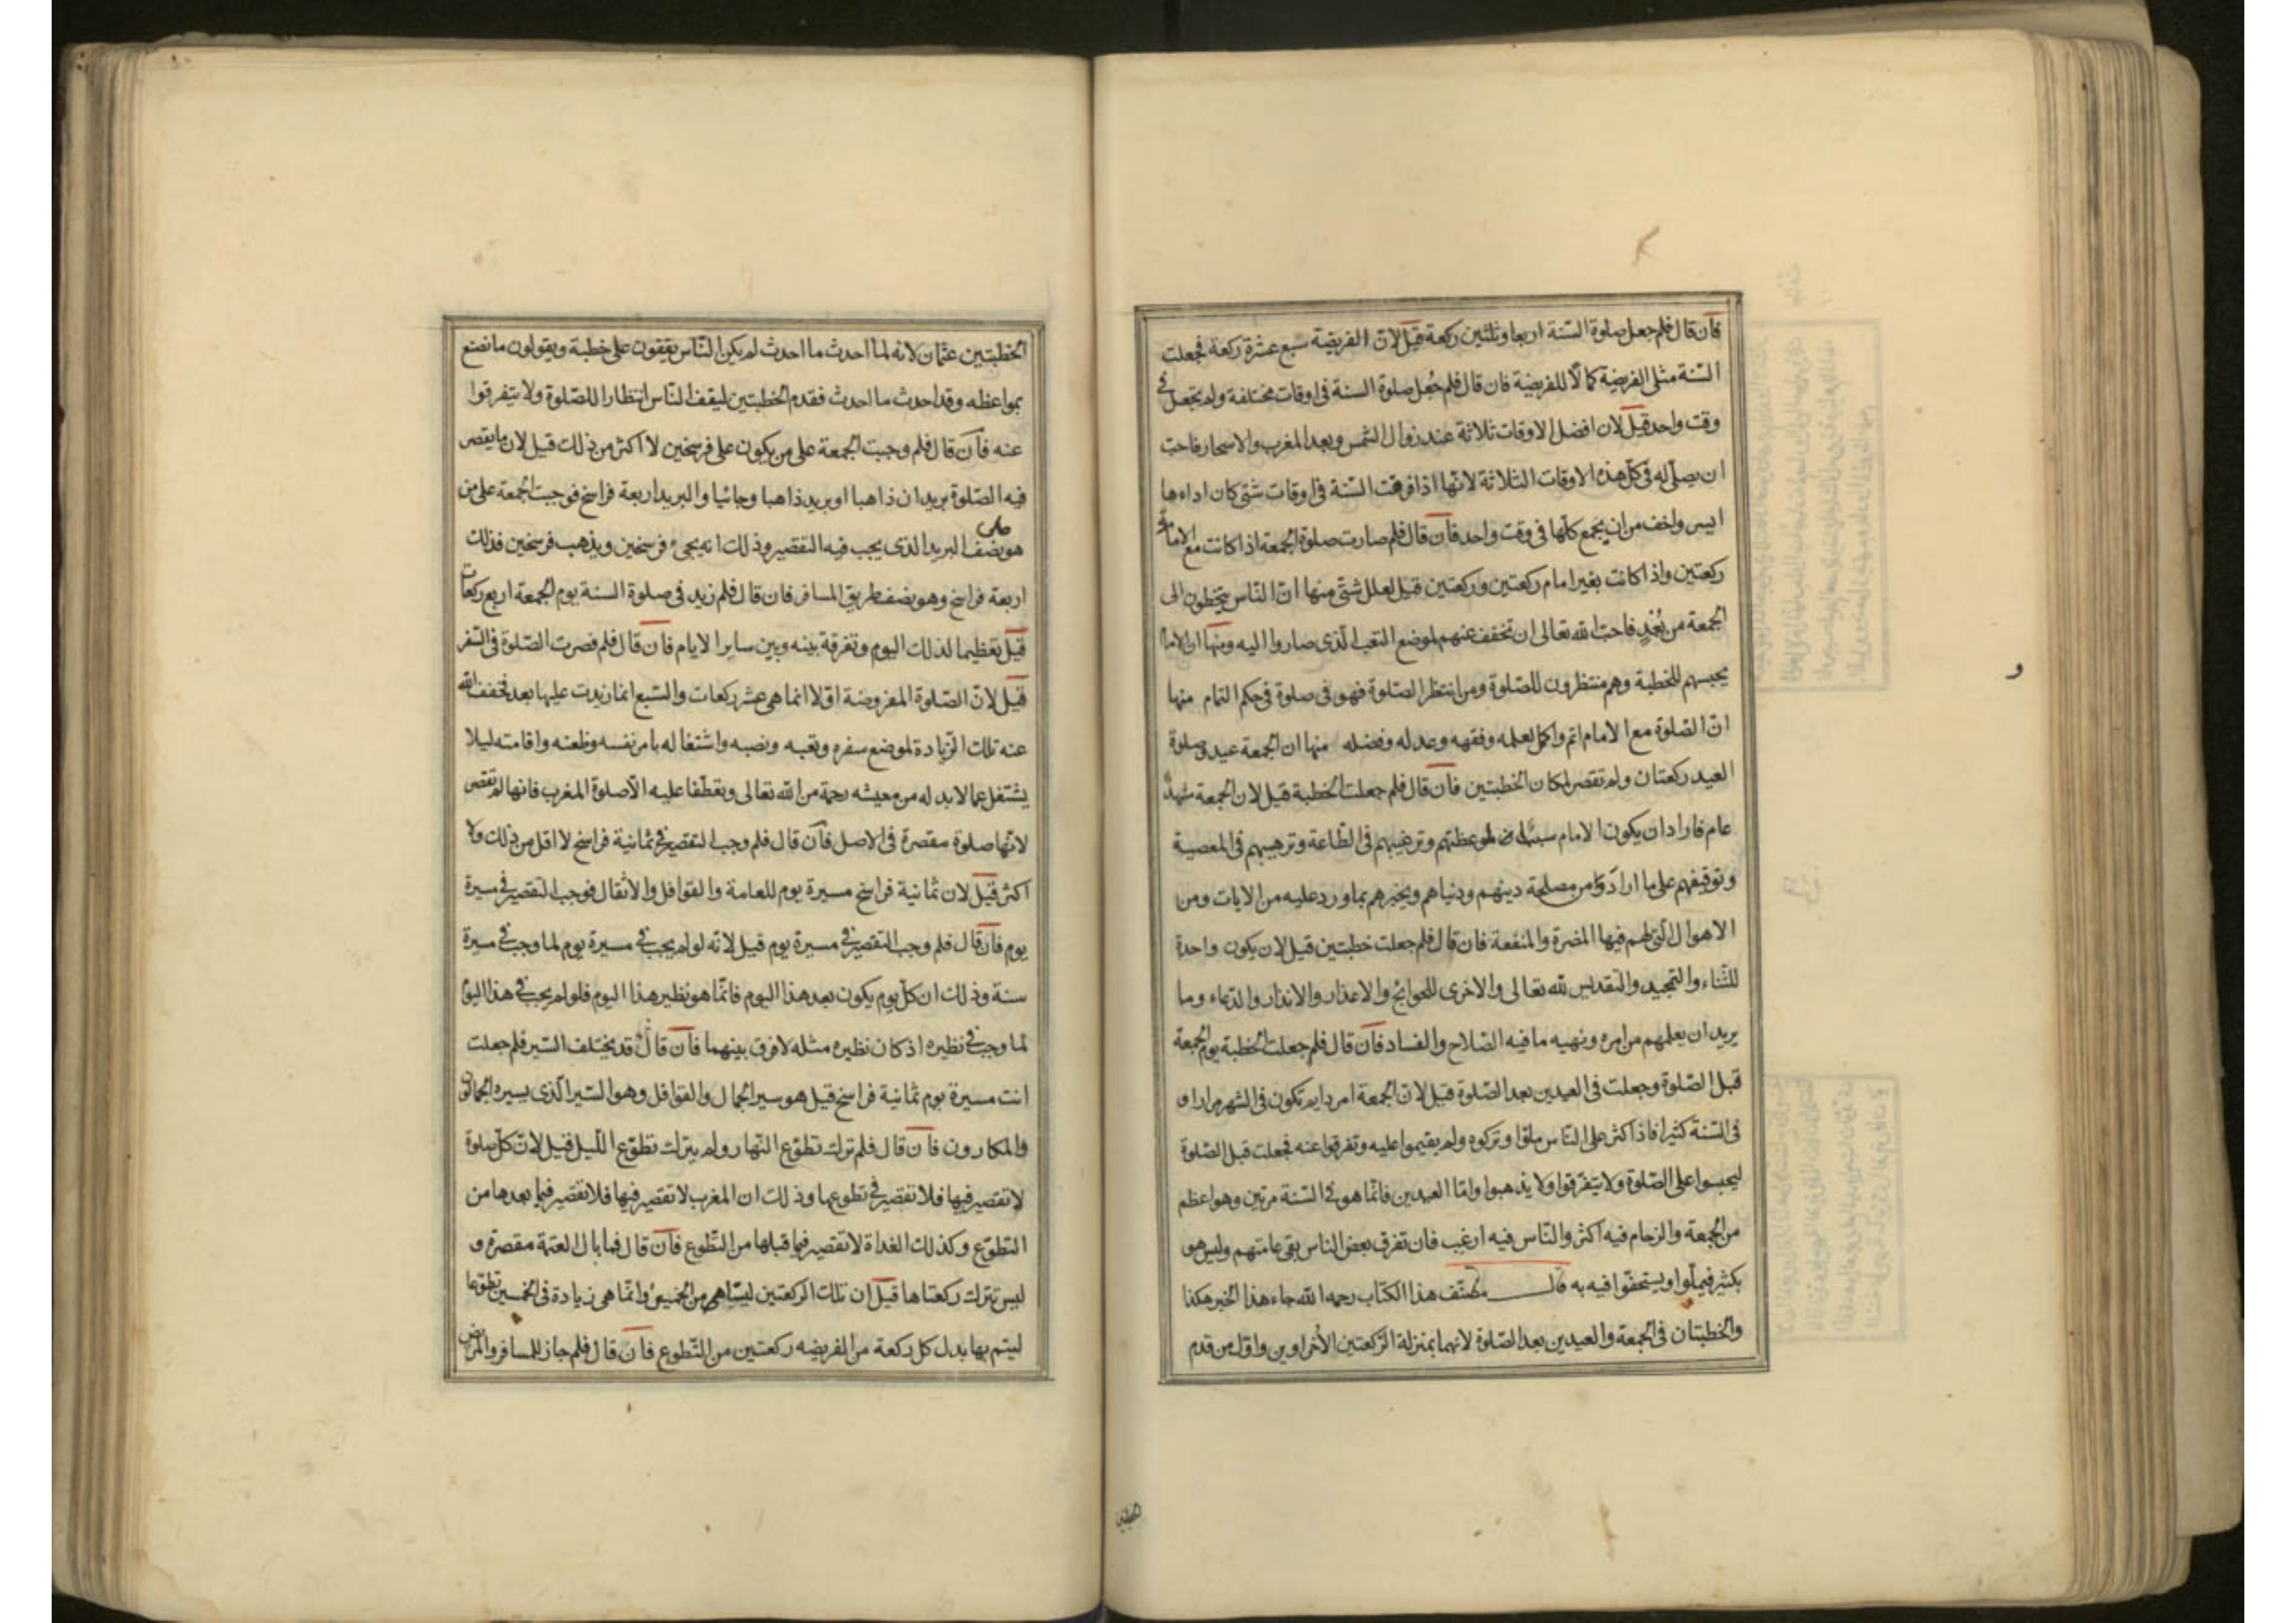 فان قال فلم جعل صلوة السّنة اربعا وثلثين ركعة قيل لانّ الفريضة سبع عشرة ركعة فجعلت
السّنة مثلى الفريضة كمالا للفريضة فان قال فلم جُعل صلوة السنة فى اوقات مختلفة ولم تجعل فى
وقت واحد قيل لان افضل الاوقات ثلاثة عند زوال الشمس وبعد المغرب والاسحار فاحب
ان يصلّى له فى كلّ هذه الاوقات الثلاثة لانّها اذا فرقت السّنة فى اوقات شتى كان اداءها
ايسر واخف من ان يجمع كلّها فى وقت واحد فان قال فلم صارت صلوة الجمعة اذا كانت مع الامام
ركعتين واذا كانت بغير امام ركعتين وركعتين قيل لعلل شتّى منها انّ النّاس يتخطون الى
الجمعة من بُعْدٍ فاحبّ الله تعالى ان تخفف عنهم لموضع التعب الّذى صاروا اليه ومنها ان الامام
يحبسهم للخطبة وهم منتظرون للصّلوة ومن انتظر الصّلوة فهو فى صلوة فى حكم التمام منها
انّ الصّلوة مع الامام اتم واكمل لعلمه وفقهه وعدله وفضله منها ان الجمعة عيد وصلوة
العيد ركعتان ولم تقصر لمكان الخطبتين فان قال فلم جعلت الخطبة قيل لان الجمعة مشهد
عام فاراد ان يكون الامام سببا لموعظتهم وترغيبهم فى الطّاعة وترهيبهم فى المعصية
وتوقيفهم على ما اراد من مصلحة دينهم ودنياهم ويخبرهم بما ورد عليه من الايات ومن
الاهوال الّتى لهم فيها المضرة والمنفعة فان قال فلم جعلت خطبتين قيل لان يكون واحدة
للثّناء والتمجيد والتقديس لله تعالى والاخرى للحوائج والاعذار والانذار والدّعاء وما
يريد ان يعلمهم من امره ونهيه ما فيه الصّلاح والفساد فان قال فلم جعلت الخطبة يوم الجمعة
قبل الصّلوة وجعلت فى العيدين بعد الصّلوة قيل لانّ الجمعة امر دايم تكون فى الشهر مرارا و
فى السّنة كثيرا فاذا كثر على النّاس ملوّا وتركوه ولم يقيموا عليه وتفرقوا عنه فجعلت قبل الصّلوة
ليحبسوا على الصّلوة ولا يتفرّقوا ولا يذهبوا وامّا العيدين فانّما هو فى السّنة مرتين وهو اعظم
من الجمعة والزحام فيه اكثر والنّاس فيه ارغب فان تفرق بعض الناس بقى عامتهم وليس هو
بكثير فيملّوا ويستخفّوا فيه به قال مصنّف هذا الكتاب رحمه الله جاء هذا الخبر هكذا
والخطبتان فى الجمعة والعيدين بعد الصّلوة لانهما بمنزلة الرّكعتين الأخراوين واوّل من قدم
الخطبتين
الخطبتين عثمان لانه لما احدث ما احدث لم يكن النّاس يقفون على خطبة ويقولون ما نصنع
بمواعظه وقد احدث ما احدث فقدم الخطبتين ليقف النّاس انتظارا للصّلوة ولا يتفرقوا
عنه فان قال فلم وجبت الجمعة على من يكون على فرسخين لا اكثر من ذلك قيل لان ما يقصر
فيه الصّلوة بريدان ذاهبا او بريد ذاهبا وجائيا والبريد اربعة فراسخ فوجبت الجمعة على من
هو على نصف البريد الذى يجب فيه التقصير وذلك انه يجىء فرسخين ويذهب فرسخين فذلك
اربعة فراسخ وهو نصف طريق المسافر فان قال فلم زيد فى صلوة السنة يوم الجمعة اربع ركعات
قيل تعظيما لذلك اليوم وتفرقة بينه وبين ساير الايام فان قال فلم قصرت الصّلوة فى السّفر
قيل لانّ الصّلوة المفروضة اوّلا انما هى عشر ركعات والسّبع انما زيدت عليها بعد فخفف الله
عنه تلك الزّيادة لموضع سفره وتعبه ونصبه واشتغاله بامر نفسه وظعنه واقامته ليلا
يشتغل عما لا بد له من معيشه رحمة من الله تعالى وتعطّفا عليه الّا صلوة المغرب فانها لم تقصر
لانّها صلوة مقصرة فى الاصل فان قال فلم وجب التقصير فى ثمانية فراسخ لا اقل من ذلك ولا
اكثر قيل لان ثمانية فراسخ مسيرة يوم للعامة والقوافل والاثقال فوجب التقصير فى مسيرة
يوم فان قال فلم وجب التقصير فى مسيرة يوم قيل لانّه لو لم يجب فى مسيرة يوم لما وجب فى مسيرة
سنة وذلك ان كلّ يوم يكون بعد هذا اليوم فانّما هو نظير هذا اليوم فلو لم يجب فى هذا اليوم
لما وجب فى نظيره اذ كان نظيره مثله لا فرق بينهما فان قال قد يختلف السّير فلم جعلت
انت مسيرة يوم ثمانية فراسخ قيل هو سير الجمال والقوافل وهو السّير الّذى يسيره الجمالون
والمكارون فان قال فلم ترك تطوّع النّهار ولم يترك تطوّع اللّيل قيل لانّ كلّ صلوة
لا تقصير فيها فلا تقصير فى تطوعها وذلك ان المغرب لا تقصير فيها فلا تقصير فيما بعدها من
التطوّع وكذلك الغداة لا تقصير فيما قبلها من التّطوع فان قال فما بال العتمة مقصرة و
ليس تترك ركعتاها قيل ان تلك الركعتين ليستا هى من الخمسين وانّما هى زيادة فى الخمسين تطوّعا
ليتم بها بدل كل ركعة من الفريضه ركعتين من التّطوع فان قال فلم جاز للمسافر والمريض